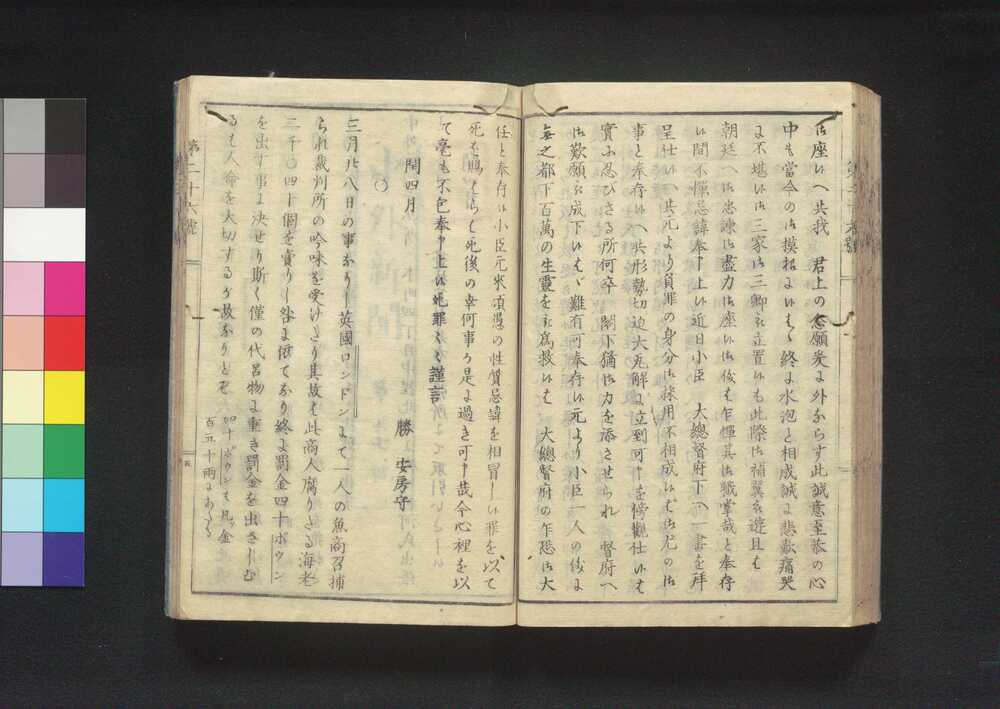 御座い へ共我 君上の念願爰に外ならす此誠意至恭の心
中も當今の御模樣にいはゝ終に水泡と相成誠に悲歎痛哭
に不堪い御三家御三卿を立置いも此際御補翼を遊且も
朝廷へ御忠諫御盡力御座い御後も乍憚其御職掌哉と奉存
い間不憚忌諱奉申上い近日小臣 大總督府下へ一書を拜
呈仕いへ共元より負罪の身分御採用不相成いはゝ御尤の御
事と奉存いへ共形勢切迫大瓦解に立到可申を傍觀仕いも
實に忍びさる所何卒 閣下猶御力を添させられ 督府へ
御歎願を成下いはゝ難有可奉存い元より小臣一人の
無之都下百萬の生靈を 爲救いも 大總督府の乍恐御大
任と奉存い小臣元來頑愚の性質忌諱を相冒しい罪を以て
死を賜はらは死後の幸何事か是に過き可申哉今心裡を以
て毫も不包奉申上い死罪くく謹言
閏四月 勝 安房守
〇
三月廿八日の事なりし英國ロンドンにて一人の魚商召捕
られ裁判所の吟味を受けたり其故は此商人腐りたる海老
二千〇四十個を賣りし咎に依てなり終に罰金四十ポウン
を出す事に決せり斯く僅の代呂物に重き罰金を出さしむ
るは人命を大切するか故なりとそ
四十ポウンは凡ッ金
百五十兩にあたる
第二十六號
五